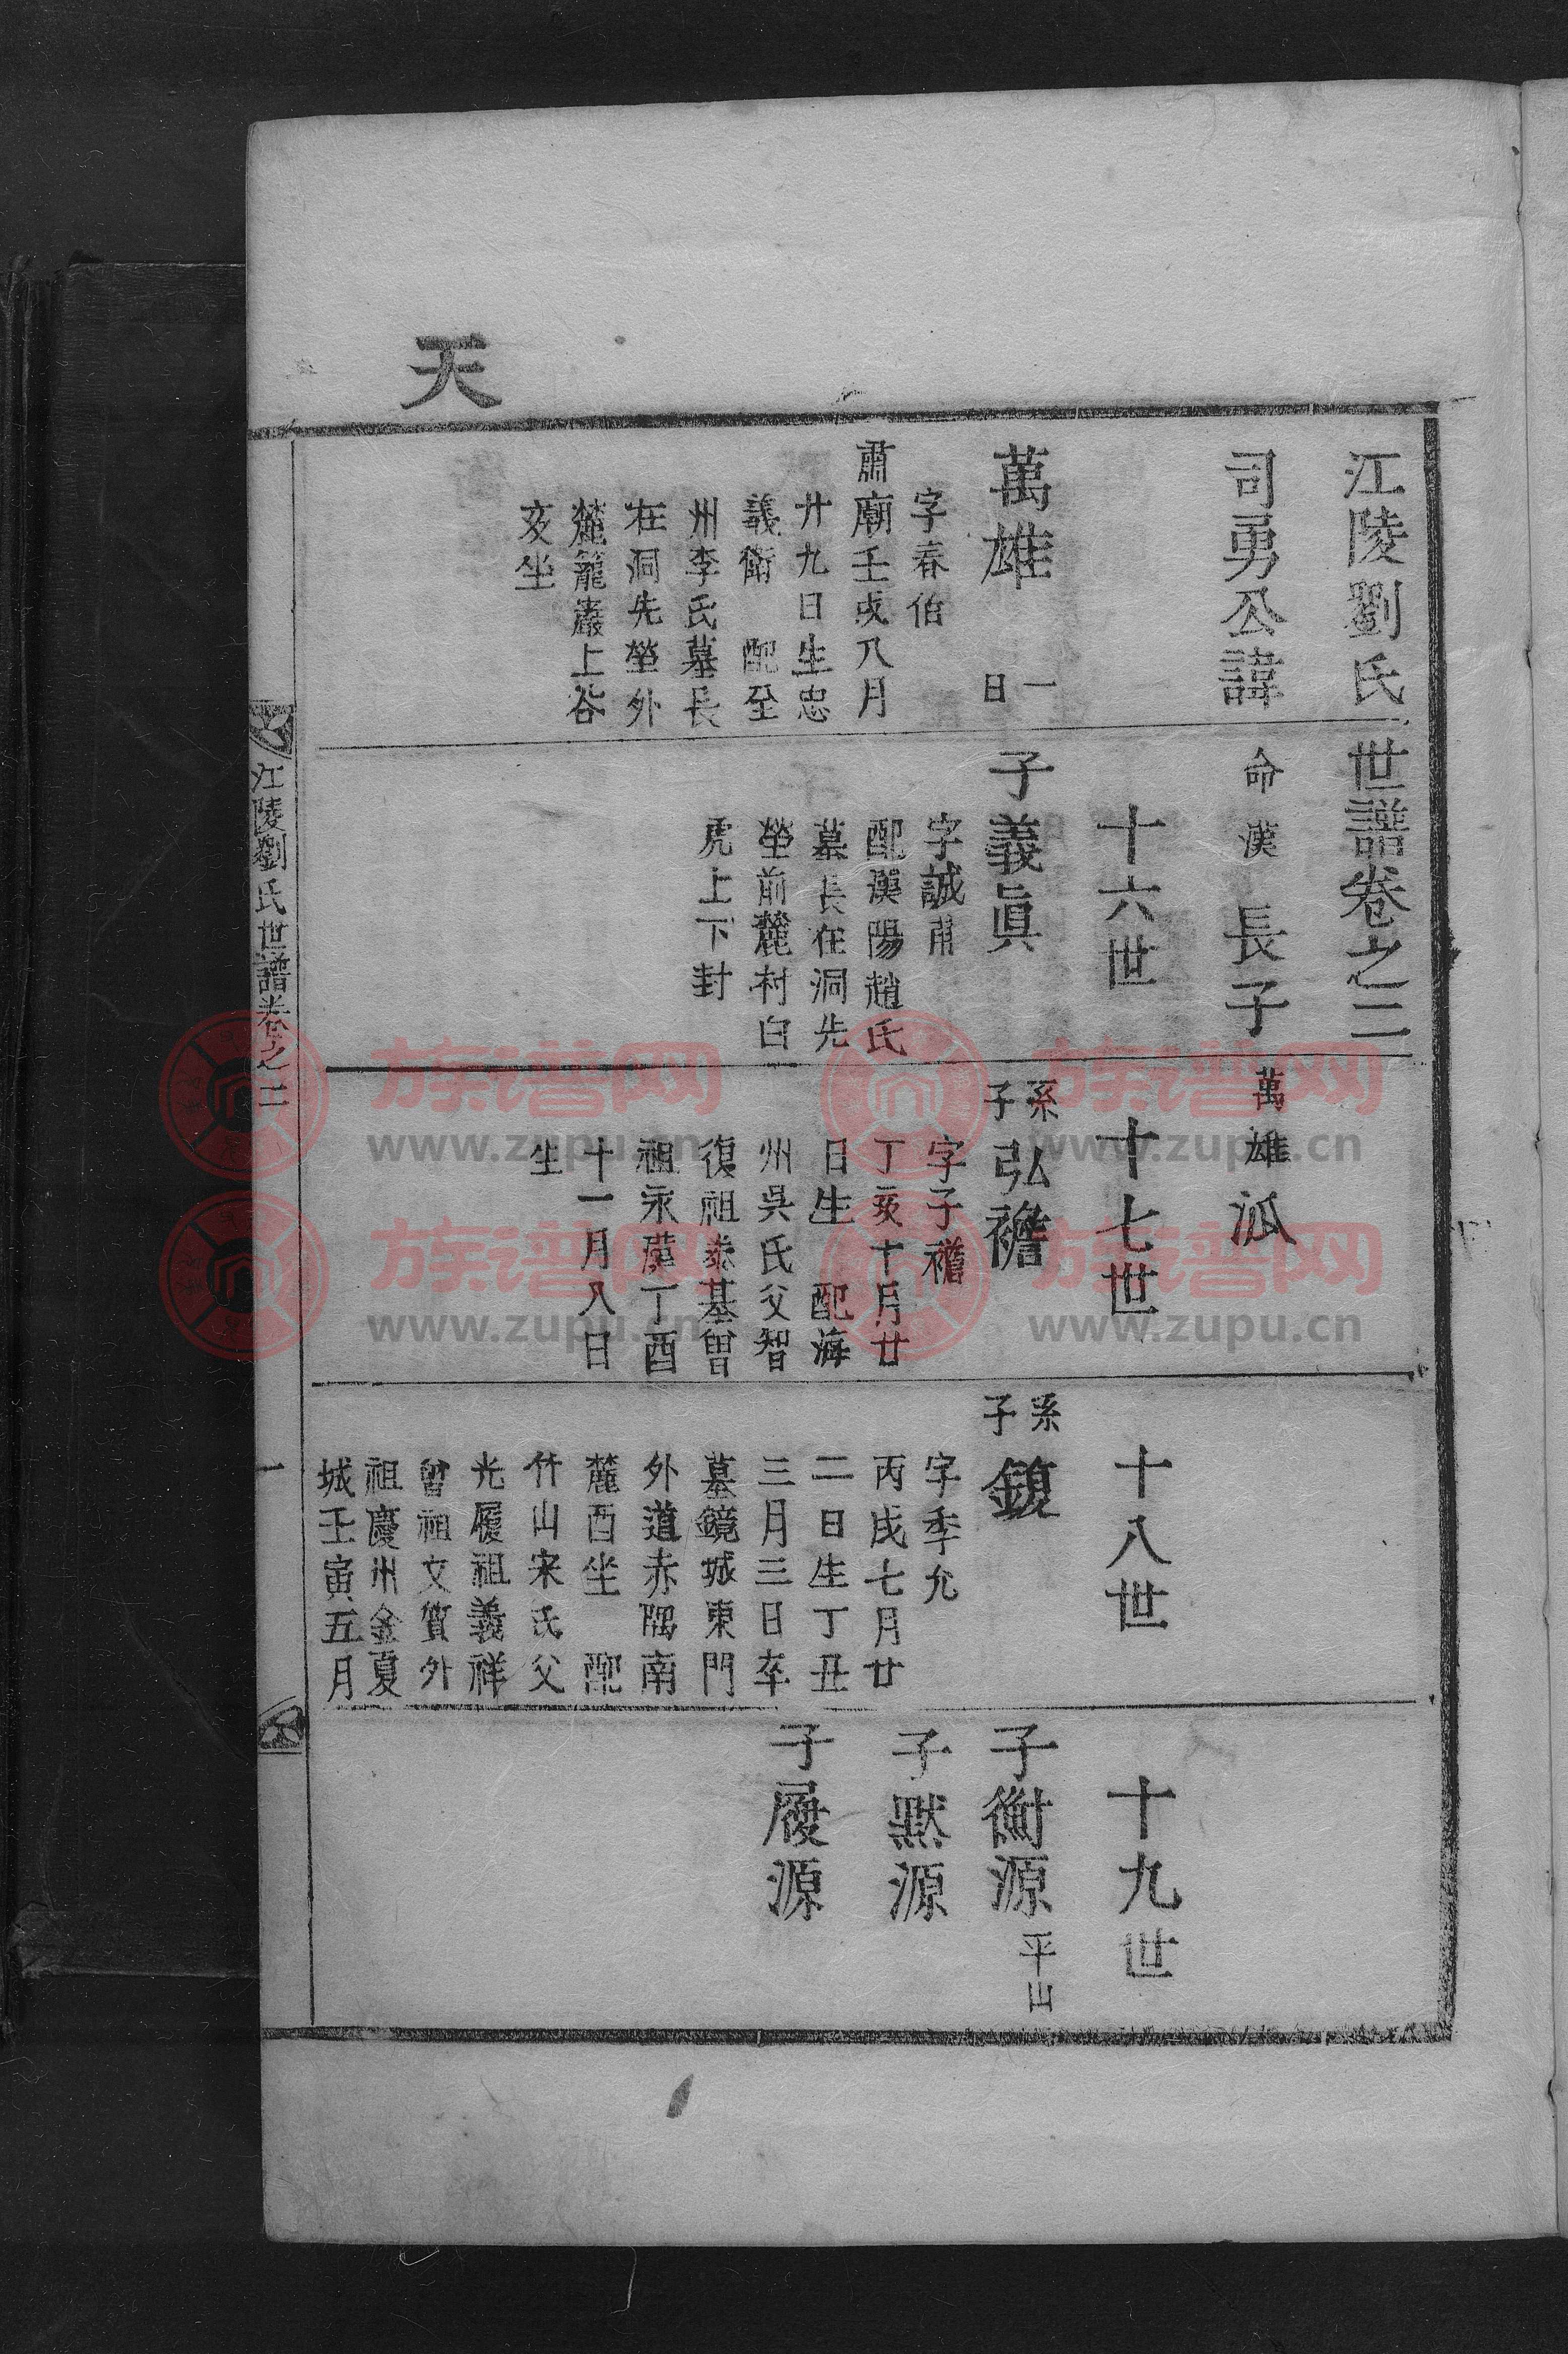 天
江陵劉氏世譜卷之二
司勇公諱 命漢 長子 萬雄 派
十六世
十七世
十八世
十九世
萬雄 一日
字春伯
肅廟壬戌八月
廿九日生忠
義衛 配全
州李氏墓長
在洞先塋外
麓籠巖上谷
亥坐
子義眞
字誠甫
配漢陽趙氏
墓長在洞先
塋前麓村白
虎上下封
系子 弘襜
字子襜
丁亥十月廿
日生 配海
州吳氏父智
復祖泰基曾
祖永漢丁酉
十一月八日
生
系子 鍑
字季允
丙戌七月廿
二日生丁丑
三月三日卒
墓鏡城東門
外道赤隅南
麓酉坐 配
竹山宋氏父
光履祖義祥
曾祖文質外
祖慶州金夏
城壬寅五月
子衡源 平山
子默源
子履源
江陵劉氏世譜卷之二
一
族谱网
www.zupu.cn
族谱网
www.zupu.cn
族谱网
www.zupu.cn
族谱网
www.zupu.cn